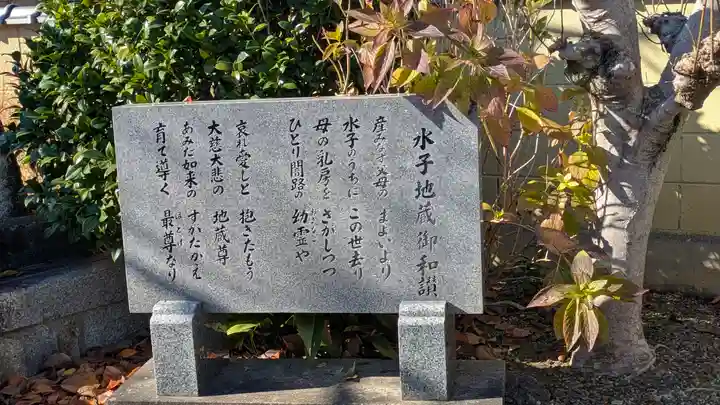 水子地蔵御和讃
産みなす父母の まよいより
水子のうちに この世去り
母の乳房を さがしつつ
ひとり闇路の 幼霊や
おさなご
哀れ愛しと 抱きたもう
大慈大悲の 地蔵尊
あみだ如来の すがたかえ
育て導く 最尊なり
ほとけ